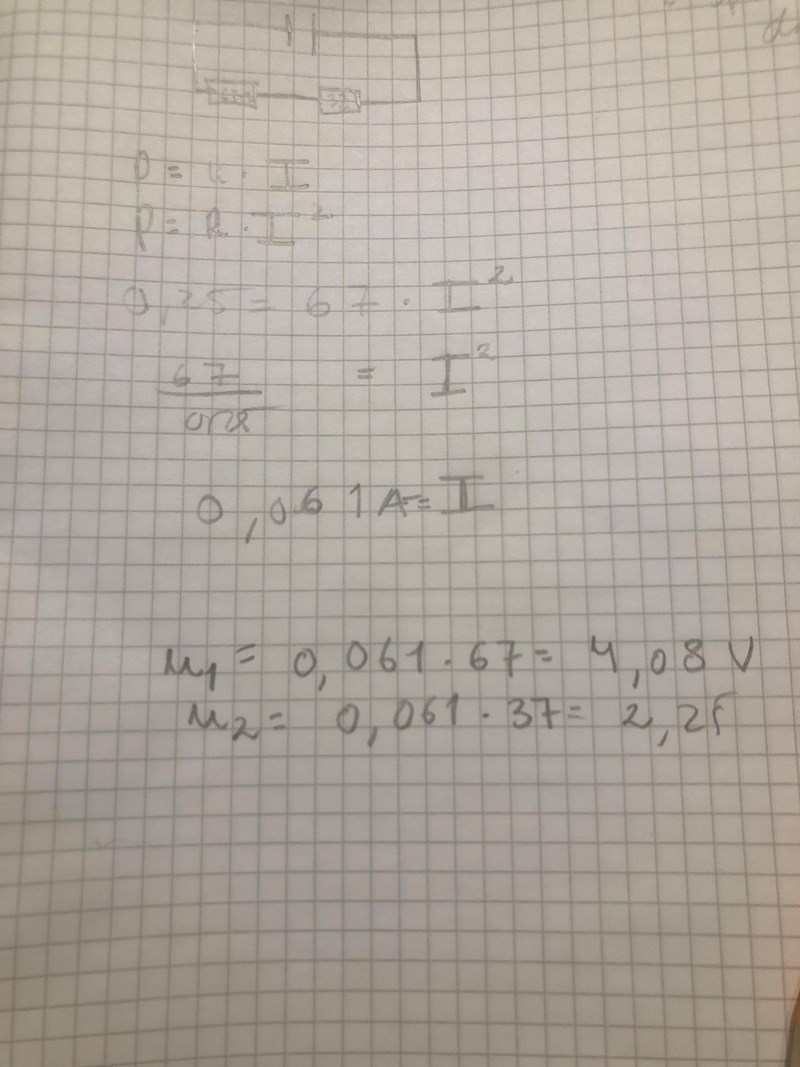 P = U · I
P = R · I²
0,25 = 67 · I²
67 / 0,25 = I²
0,061 A = I
u₁ = 0,061 · 67 = 4,08 V
u₂ = 0,061 · 37 = 2,25